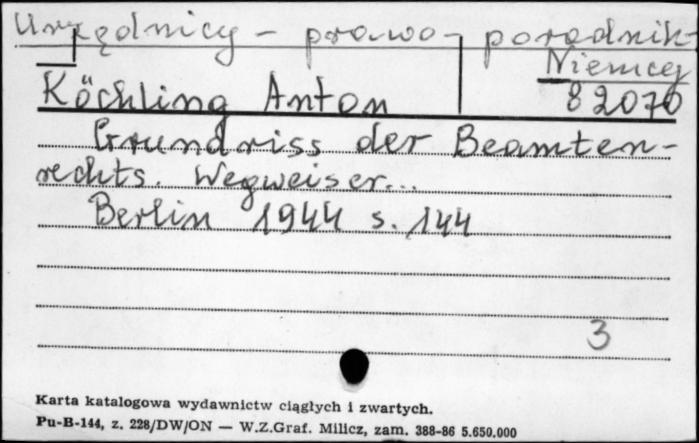 Urzędnicy - prawo - poradnik -
Niemcy
Köchling Anton 82070
Grundriss der Beamten-
rechts. Wegweiser...
Berlin 1944 s. 144
3
Karta katalogowa wydawnictw ciągłych i zwartych.
Pu-B-144, z. 228/DW/ON — W.Z.Graf. Milicz, zam. 388-86 5.650.000